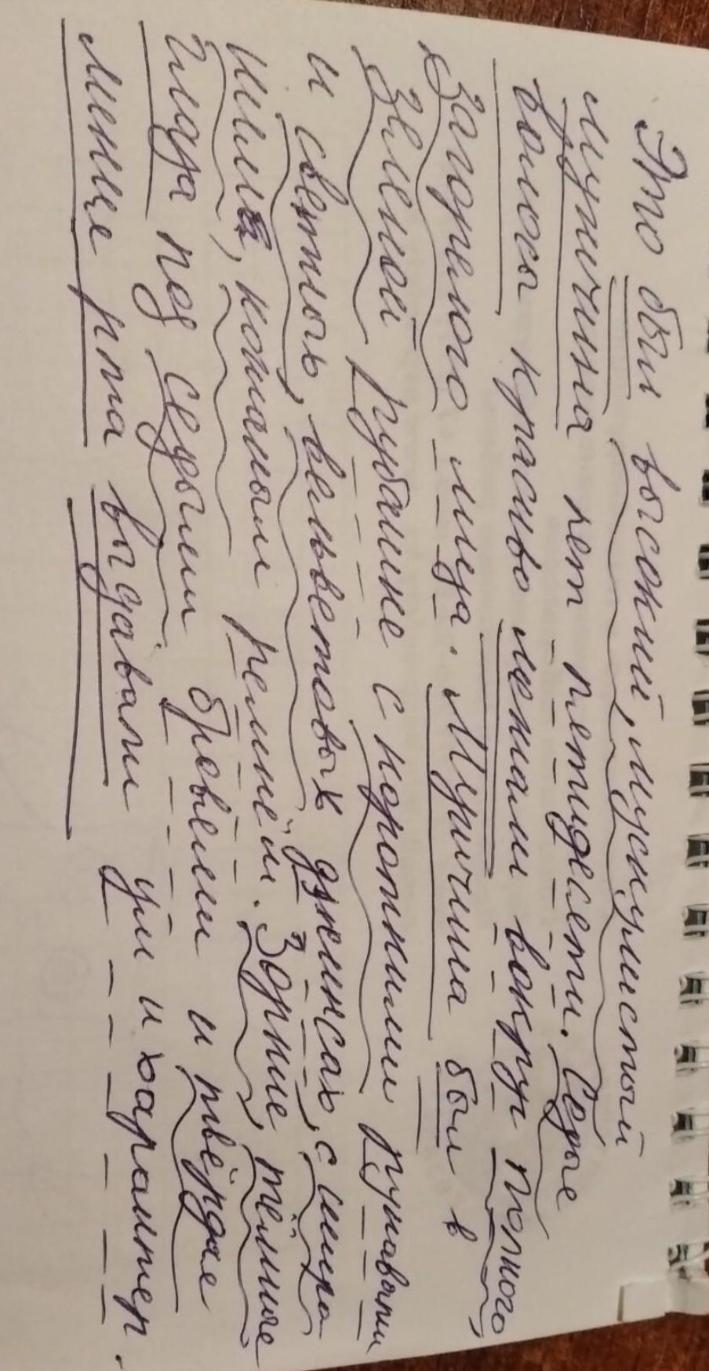 Это был высокий, мускулистый
мужчина лет пятидесяти. Седые
волосы красиво лежали вокруг полного,
загорелого лица. Мужчина был в
зеленой рубашке с короткими рукавами
и светлых, вельветовых джинсах, с широ
ким, кожаным ремнём. Зоркие, тёмные
глаза под седыми бровями и твёрдая
линия рта выдавали ум и характер.